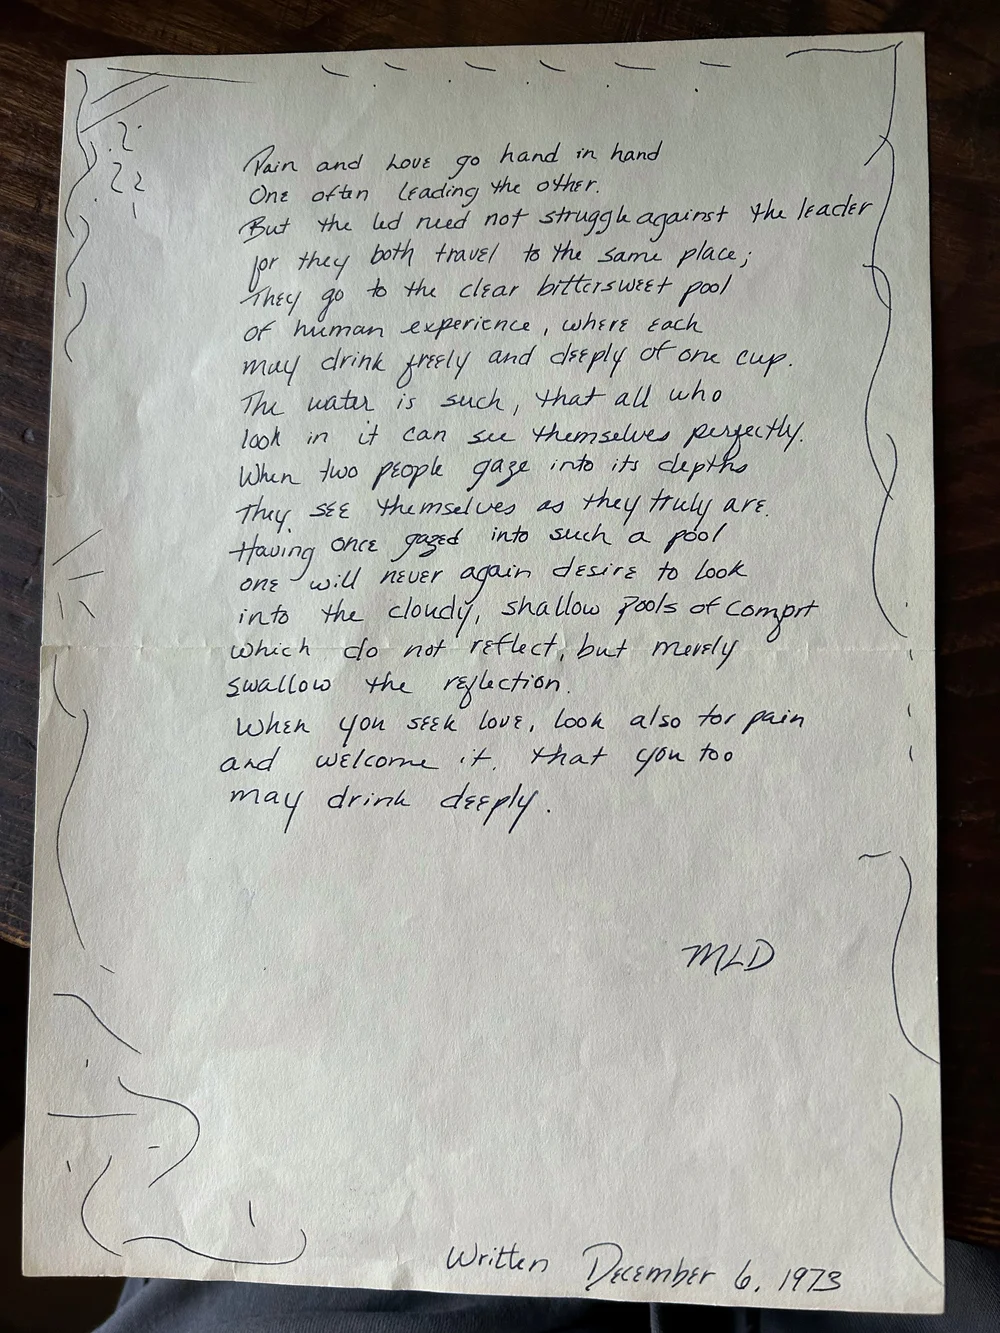 Pain and Love go hand in hand
One often leading the other.
But the led need not struggle against the leader
for they both travel to the same place;
They go to the clear bittersweet pool
of human experience, where each
may drink freely and deeply of one cup.
The water is such, that all who
look in it can see themselves perfectly.
When two people gaze into its depths
They see themselves as they truly are.
Having once gazed into such a pool
one will never again desire to look
into the cloudy, shallow pools of comfort
which do not reflect, but merely
swallow the reflection.
When you seek love, look also for pain
and welcome it, that you too
may drink deeply.
MLD
Written December 6, 1973